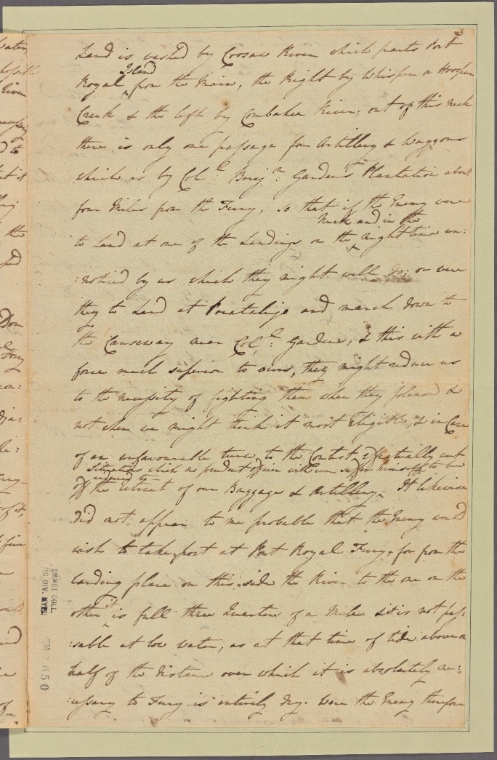 Land is washed by Coosaw River which parts Port
Island
Royal from the Main, the Right by Whispen or Hoopen
Creek & the left by Combahee River; out of this Neck
there is only one passage for Artillery & Waggons
which is by Col.l Benj.n Gardens Plantation about
four Miles from the Ferry, so that if the Enemy were
Neck and in the
to Land at one of the Landings on the night time un:
:noticed by us which they might well do; or were
they to Land at Pocotaligo and march down to
the Causeway near Col.l Gardens, & this with a
force much superior to ours, they might reduce us
to the necessity of fighting them when they pleased &
not when we might think it most Eligible, & in Case
of an unfavourable turn to the Contest, effectually cut
situation which no prudent officer will ever suffer himself to be
off the retreat of our Baggage & Artillery. It likewise
did not appear to me probable that the Enemy would
wish to take post at Port Royal Ferry, for from the
landing place on this side the River to the one on the
other is full three Quarters of a Mile & it is not pas:
:sable at low water, as at that time of tide above a
half of the distance over which it is absolutely ne:
:cessary to Ferry is entirely dry. Were the Enemy therefore